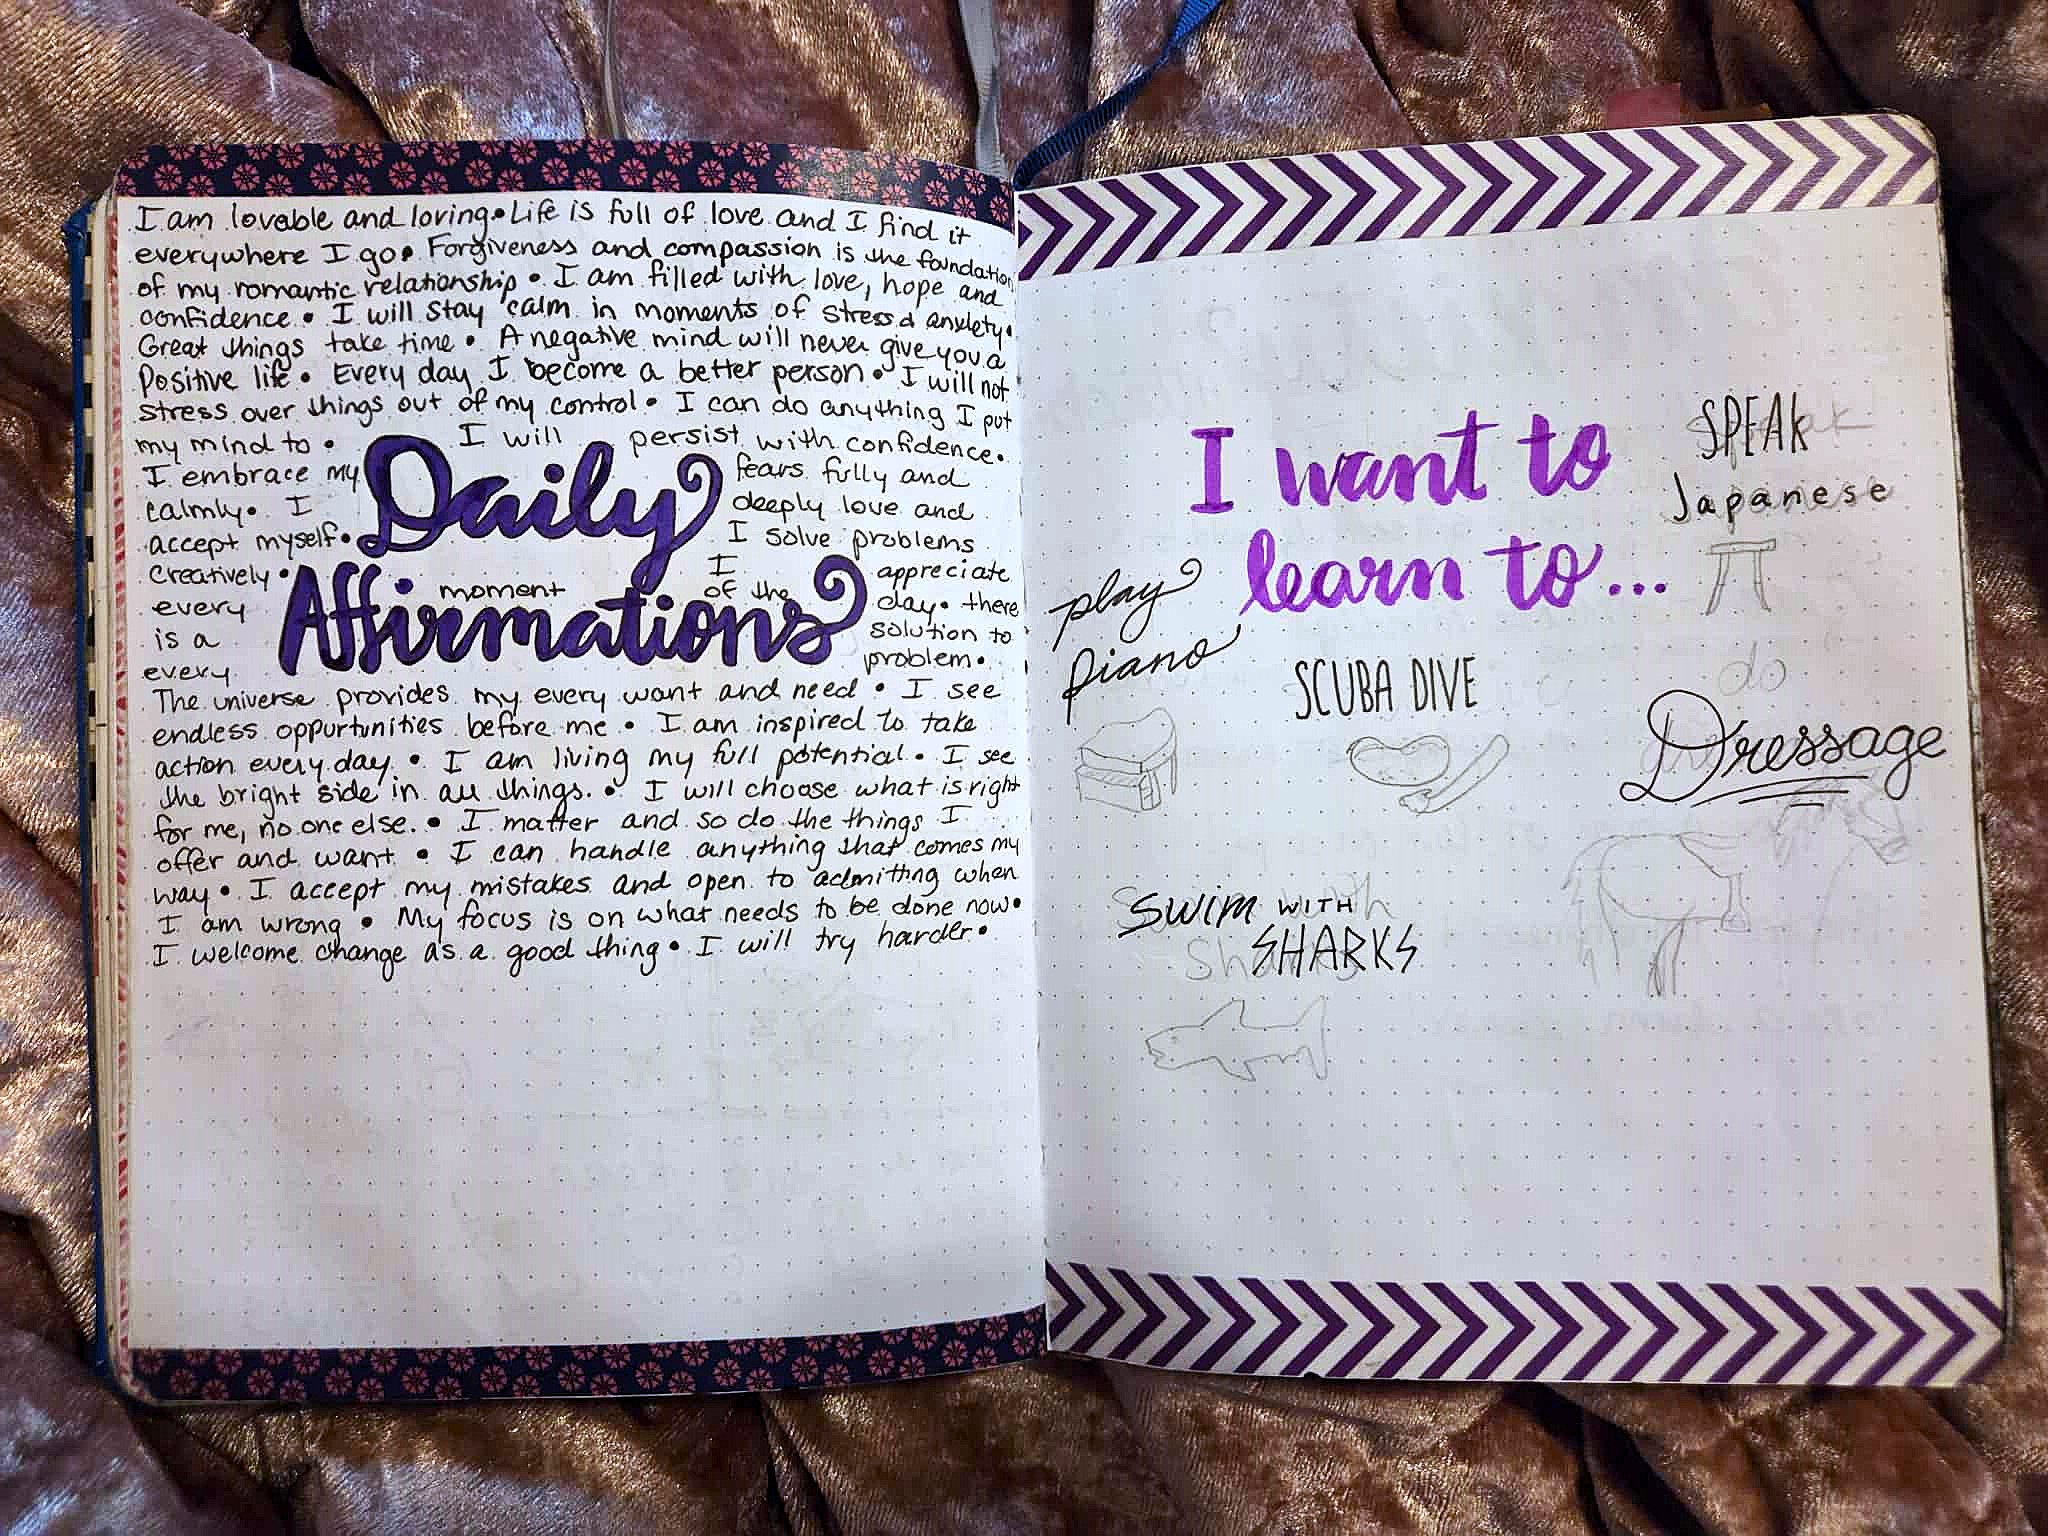 I am lovable and loving • Life is full of love and I find it
everywhere I go • Forgiveness and compassion is the foundation
of my romantic relationship • I am filled with love, hope and
confidence • I will stay calm in moments of stress & anxiety •
Great things take time • A negative mind will never give you a
positive life • Every day I become a better person • I will not
stress over things out of my control • I can do anything I put
my mind to • I will persist with confidence •
I embrace my fears fully and
calmly • I deeply love and
accept myself • I solve problems
creatively • I appreciate
every moment of the day • there
is a solution to
every problem •
Daily
Affirmations
The universe provides my every want and need • I see
endless oppurtunities before me • I am inspired to take
action every day • I am living my full potential • I see
the bright side in all things. • I will choose what is right
for me, no one else. • I matter and so do the things I
offer and want • I can handle anything that comes my
way • I accept my mistakes and open to admitting when
I am wrong • My focus is on what needs to be done now •
I welcome change as a good thing • I will try harder •
I want to
learn to...
SPEAK
Japanese
play
piano
SCUBA DIVE
do
Dressage
Swim WITH
SHARKS